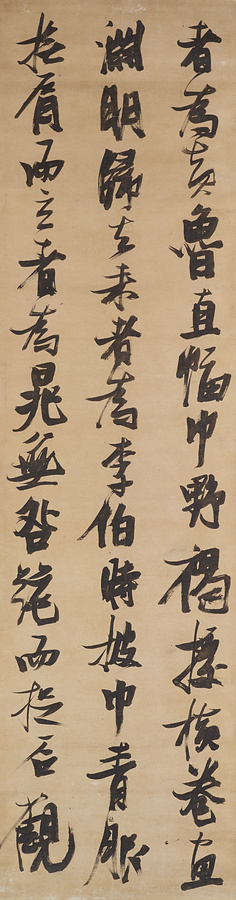 者為黃魯直幅巾野褐據橫卷畫
淵明歸去來者為李伯時披巾青服
撫肩而立者為晁無咎跪而捉石觀